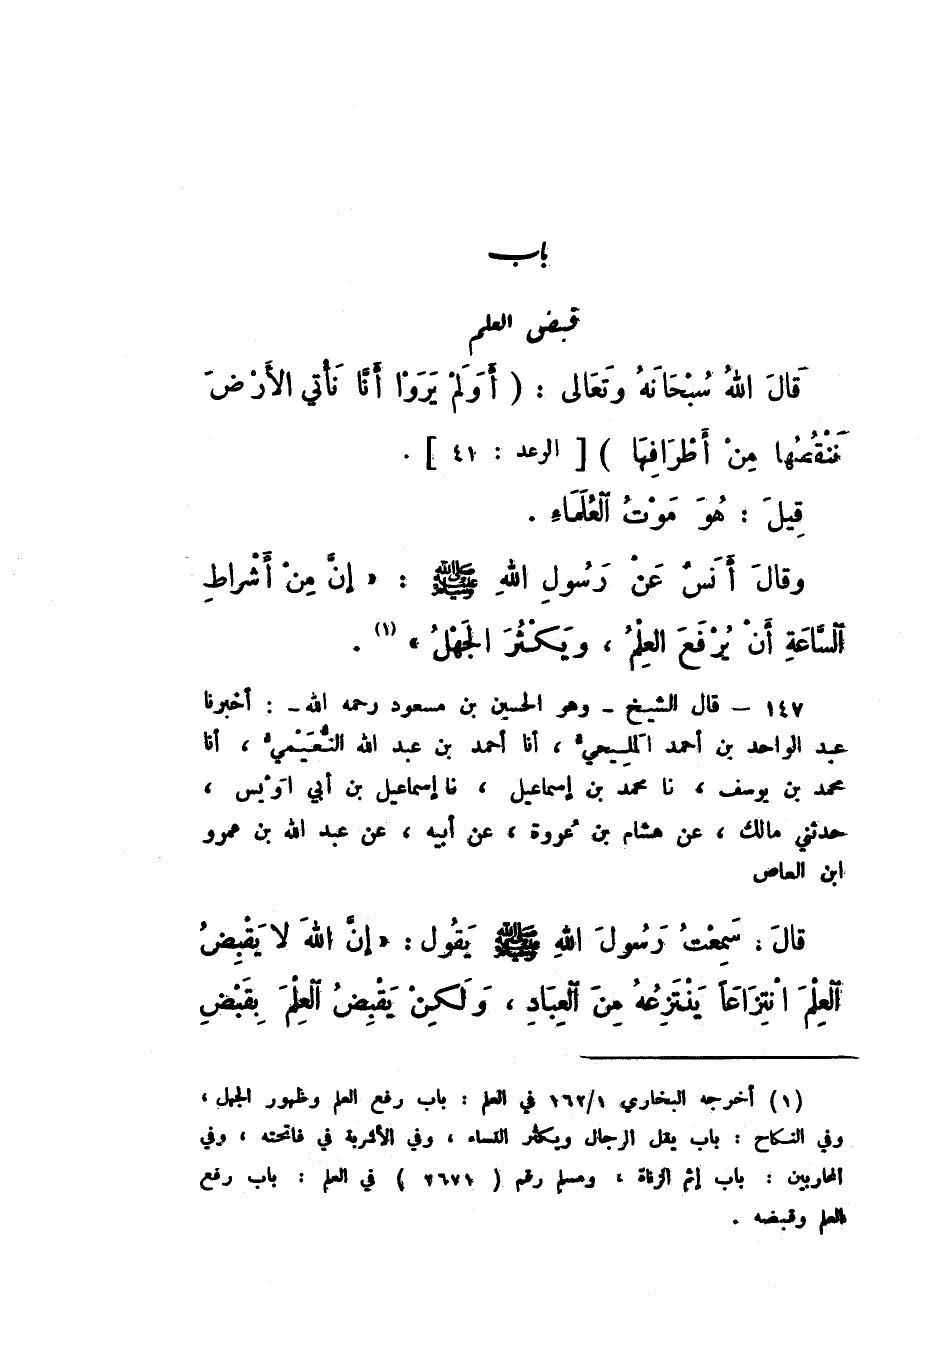 باب
قبض العلم
قَالَ اللهُ سُبْحَانَهُ وتَعَالى : ( أَوَلَمْ يَرَوْا أَنَّا نَأْتي الأَرْضَ
نَنْقُصُها مِنْ أَطْرَافِهَا ) [ الرعد : ٤١ ] .
قِيلَ : هُوَ مَوْتُ اَلْعُلَمَاءِ .
وقالَ أَنَسٌ عَنْ رَسُولِ اللهِ ﷺ : « إنَّ مِنْ أَشْراطِ
اَلسَّاعَةِ أَنْ يُرْفَعَ العِلْمُ ، ويَكْثُرَ الجَهْلُ » (١) .
١٤٧ – قال الشيخ ـ وهو الحسين بن مسعود رحمه الله ـ : أخبرنا
عبد الواحد بن أحمد المليحيُّ ، أنا أحمد بن عبد الله النُّعَيْميُّ ، أنا
محمد بن يوسف ، نا محمد بن إسماعيل ، نا إسماعيل بن أبي اوَيْس ،
حدثني مالك ، عن هشام بن عُروة ، عن أبيه ، عن عبد الله بن عمرو
ابن العاص
قالَ : سَمِعْتُ رَسُولَ اللهِ ﷺ يَقُول : « إنَّ اللهَ لا يَقْبِضُ
اَلْعِلْمَ انْتِزَاعَاً يَنْتَزِعُهُ مِنَ اَلْعِبَادِ ، وَلَكِنْ يَقْبِضُ اَلْعِلْمَ بِقَبْضِ
(١) أخرجه البخاري ١٦٢/١ في العلم : باب رفع العلم وظهور الجهل ،
وفي النكاح : باب يقل الرجال ويكثر النساء ، وفي الأشربة في فاتحته ، وفي
المحاربين : باب إثم الزناة ، ومسلم رقم ( ٢٦٧١ ) في العلم : باب رفع
العلم وقبضه .